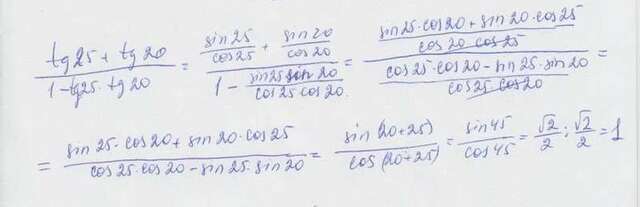 (tg25 + tg20)/(1 - tg25 · tg20) = (sin25/cos25 + sin20/cos20)/(1 - sin25 sin20/cos25 cos20.) = ((sin25 · cos20 + sin20 · cos25)/(cos20 cos25))/((cos25 · cos20 - sin25 · sin20)/(cos25 cos20)) =
= (sin25 · cos20 + sin20 · cos25)/(cos25 · cos20 - sin25 · sin20) = sin(20+25)/cos(20+25) = sin45/cos45 = √2/2 : √2/2 = 1